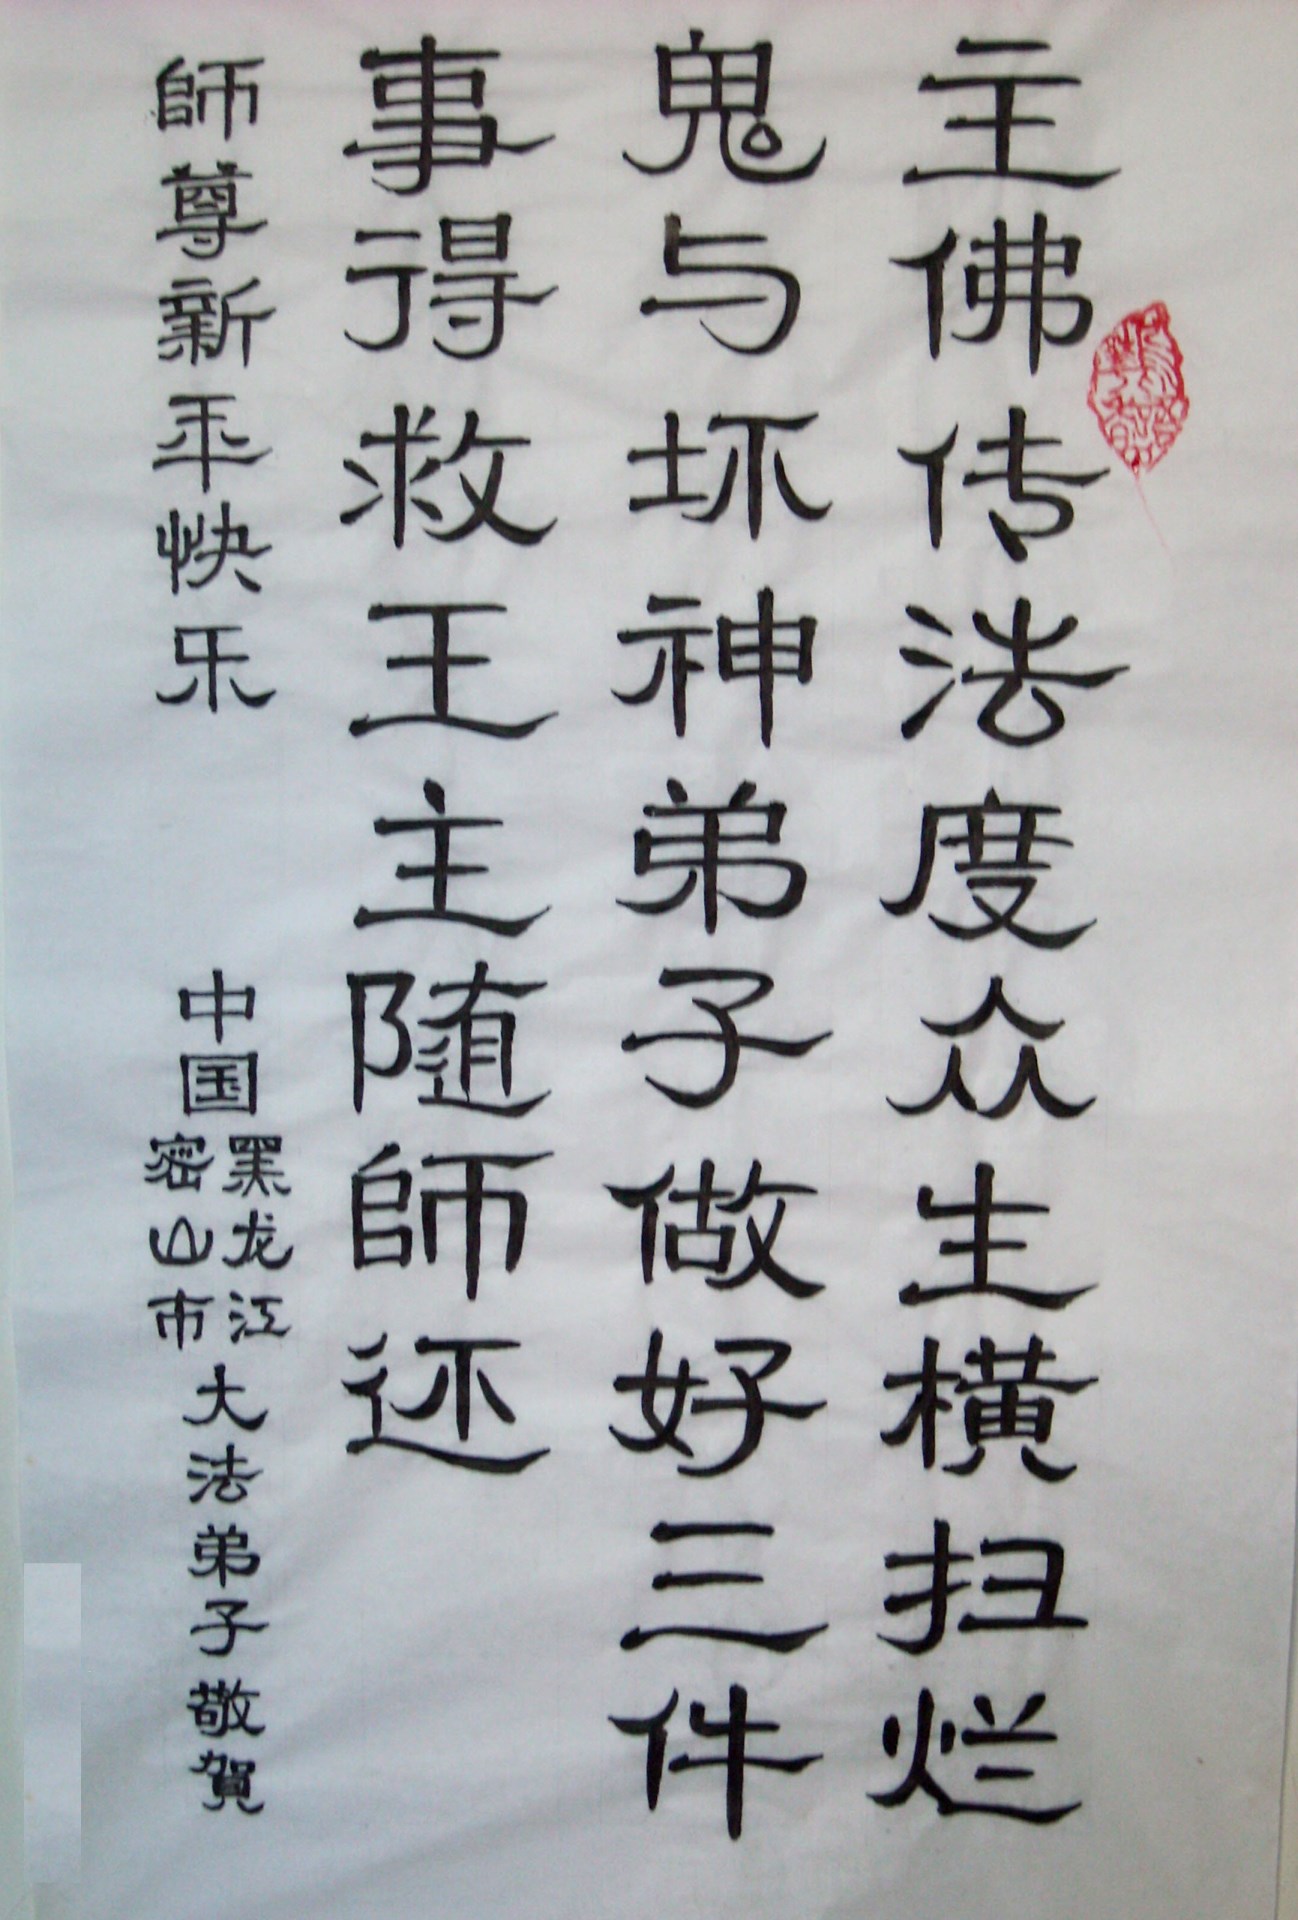 主佛传法度众生横扫烂
鬼与坏神弟子做好三件
事得救王主随師还
師尊新年快乐
中国
黑龙江
密山市
大法弟子敬賀